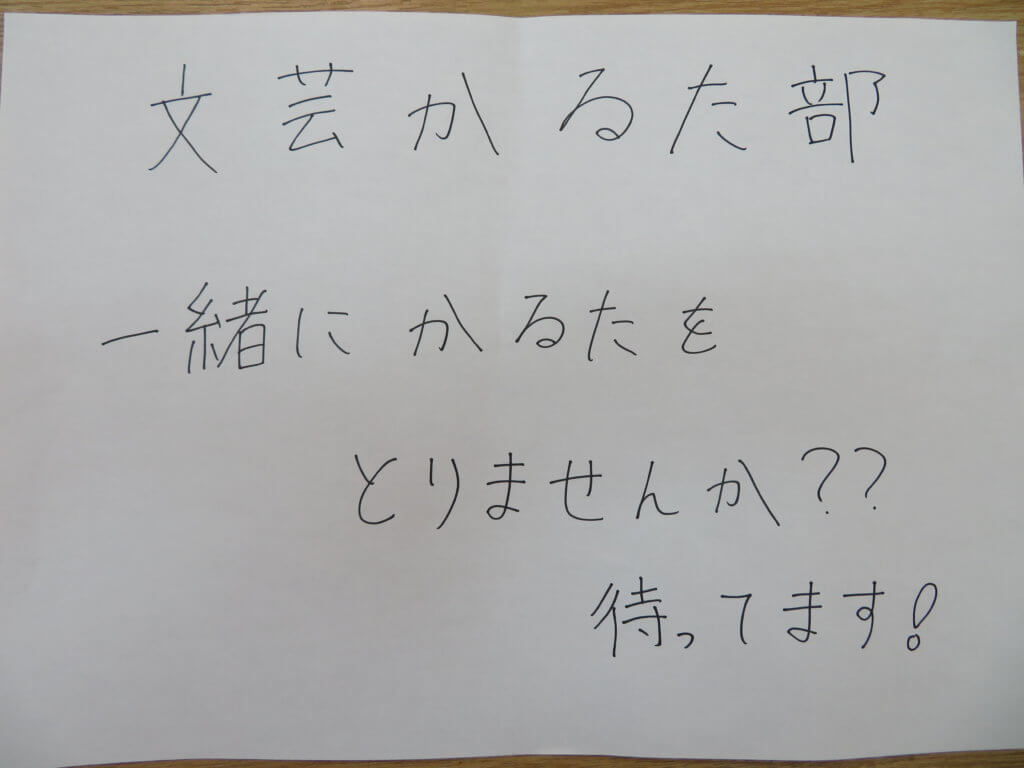 文芸かるた部
一緒にかるたを
とりませんか??
待ってます!